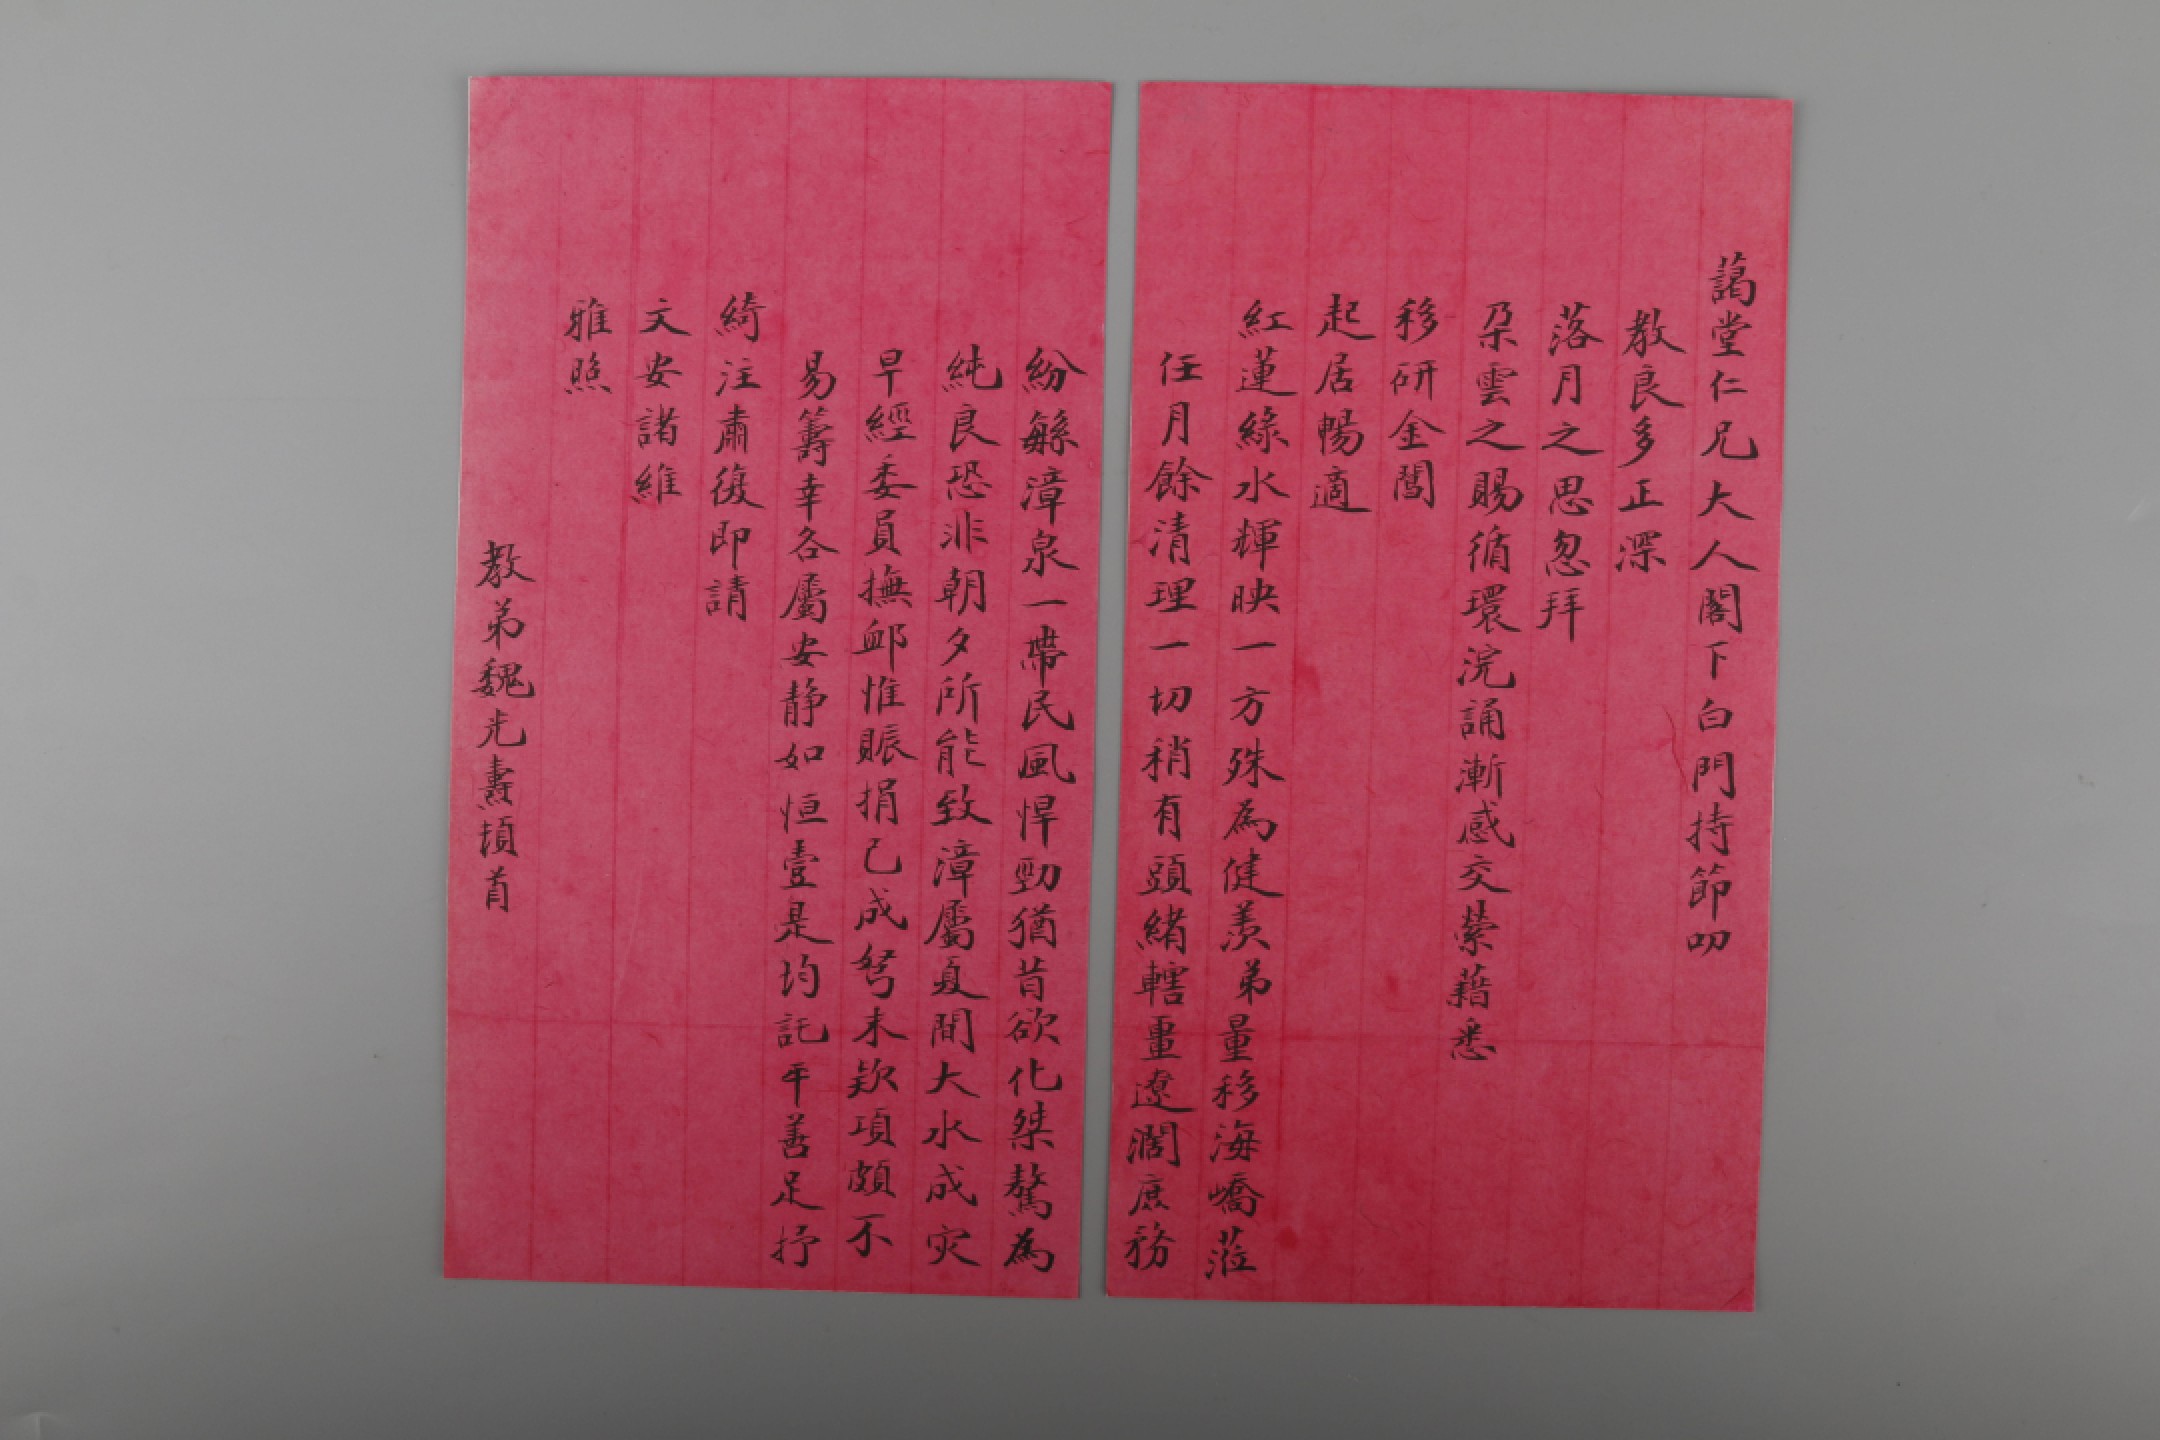 藹堂仁兄大人閣下白門持節叨
教良多正深
落月之思忽拜
朶雲之賜循環浣誦漸感交縈藉悉
移硏金閶
起居暢適
紅蓮綠水輝映一方殊為健羨弟量移海嶠蒞
任月餘清理一切稍有頭緒轄畺遼濶庶務
紛緐漳泉一帶民風悍勁猶昔欲化桀驁為
純良恐非朝夕所能致漳屬夏間大水成灾
早經委員撫卹惟賑捐已成弩末欵項頗不
易籌幸各屬安靜如恒壹是均託平善足抒
綺注肅復即請
文安諸維
雅照
教弟魏光燾頓首